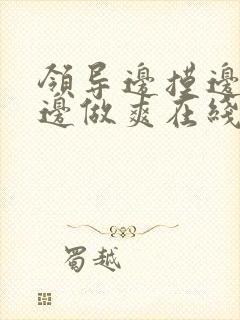 領导邊摸邊
邊做爽在綫
蜀越